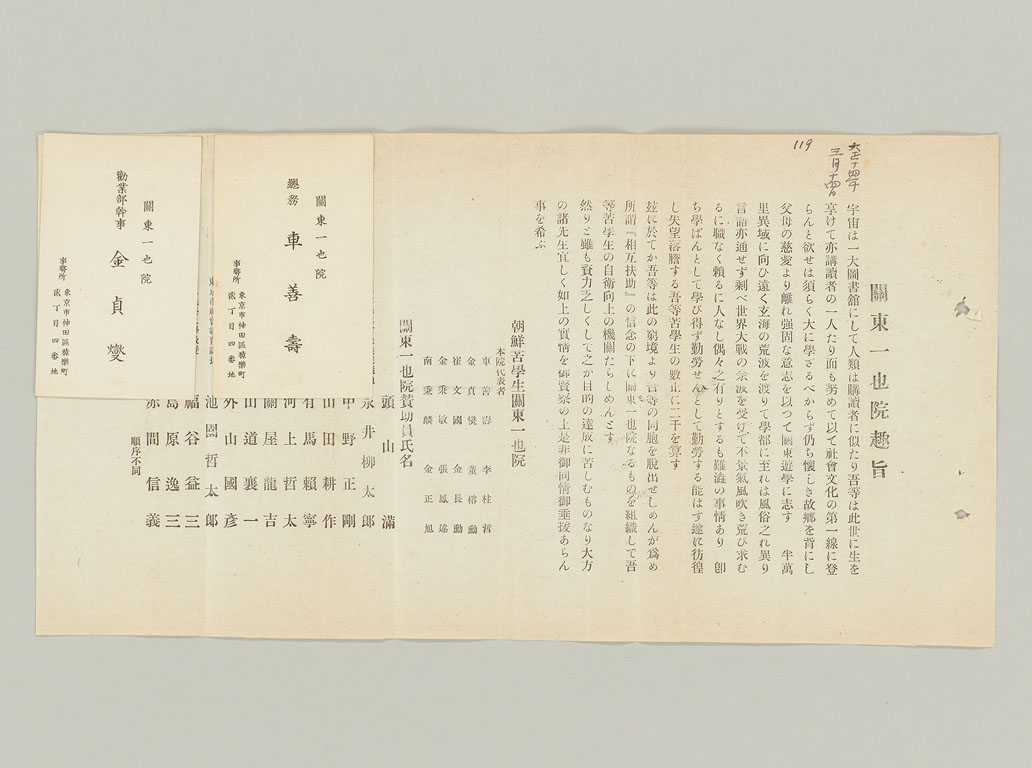 119
大正十四年
三月十四日
關東一也院趣旨
宇宙は一大圖書舘にして人類は購讀者に似たり吾等は此世に生を
享けて亦講讀者の一人たり而も努めて以て社會文化の第一線に登
らんと欲せは須らく大に學さるべからず仍ち懷しき故鄕を背にし
父母の慈愛より離れ强固な意志を以つて關東遊學に志す 半萬
里異域に向ひ遠く玄海の荒波を渡りて學都に至れは風俗之れ異り
言語亦通せず剩へ世界大戰の余波を受けて不景氣風吹き荒び求む
るに職なく賴るに人なし偶々之有りとするも難澁の事情あり 卽
ち學ばんとして學び得ず勤勞せんとして勤勞する能はず遂に彷徨
し失望落膽する吾等苦學生の數正に二千を算す
玆に於てか吾等は此の窮境より吾等の同胞を脫出せしめんが爲め
所謂『相互扶助』の信念の下に關東一也院なるものを組織して吾
等苦學生の自衛向上の機關たらしめんとす
然りと雖も資力乏しくして之が目的の達成に苦しむものなり大方
の諸先生宜しく如上の實情を御賢察の上是非御同情御垂援あらん
事を希ふ
朝鮮苦學生關東一也院
本院代表者
車善壽 李柱哲
金貞燮 董榕勳
崔文國 金長勳
金秉敏 張鳳遙
南秉麟 金正旭
關東一也院賛助員氏名
頭山滿
永井柳太郎
中野正剛
山田耕作
有馬賴寧
河上哲太
關屋龍吉
山道襄一
外山國彥
池園哲太郎
福谷益三
島原逸三
赤間信義
順序不同
關東一也院
總務 車善壽
事務所 東京市神田區猿樂町
貳丁目四番地
關東一也院
勸業部幹事 金貞燮
事務所 東京市神田區猿樂町
貳丁目四番地